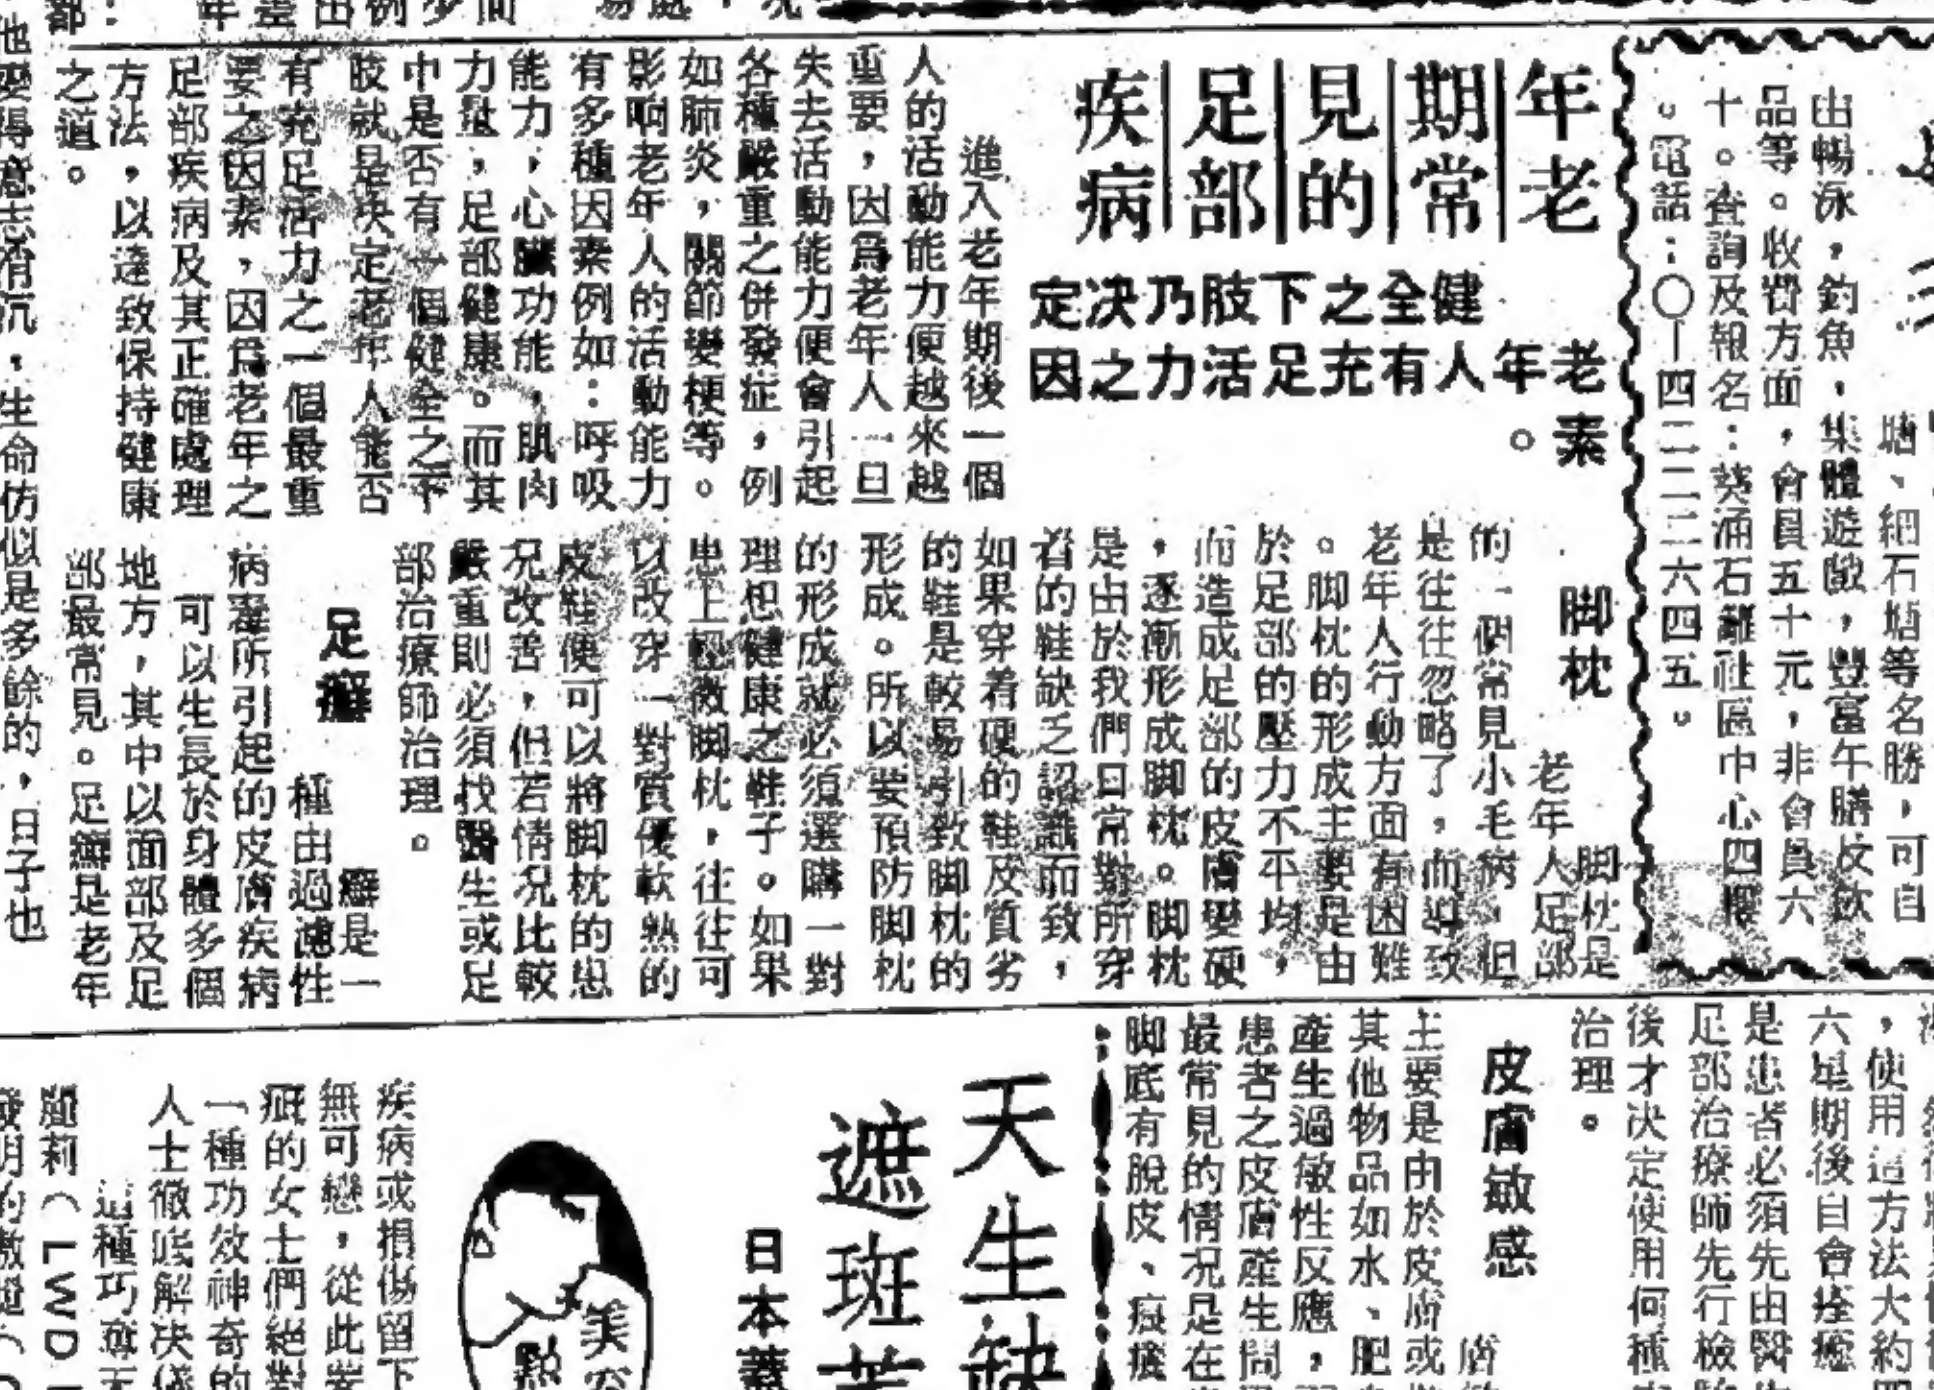 塘、細石塘等名勝，可自
由暢泳，釣魚，集體遊戲，豐富午膳及飲
品等。收費方面，會員五十元，非會員六
十。查詢及報名：葵涌石籬社區中心四樓
。電話：〇—四二二二六四五。
年老期常見的足部疾病
健全之下肢乃决定
老年人有充足活力之因
素。
進入老年期後一個
人的活動能力便越來越
重要，因爲老年人一旦
失去活動能力便會引起
各種嚴重之併發症，例
如肺炎，關節變梗等。
影响老年人的活動能力
有多種因素例如：呼吸
能力，心臟功能，肌肉
力量，足部健康。而其
中是否有一個健全之下
肢就是决定老年人能否
有充足活力之一個最重
要之因素，因爲老年之
足部疾病及其正確處理
方法，以達致保持健康
之道。
脚枕
脚枕是
老年人足部
的一個常見小毛病，但
是往往忽略了，而導致
老年人行動方面有困難
。脚枕的形成主要是由
於足部的壓力不平均，
而造成足部的皮膚變硬
，逐漸形成脚枕。脚枕
是由於我們日常對所穿
着的鞋缺乏認識而致，
如果穿着硬的鞋皮質劣
的鞋是較易引致脚枕的
形成。所以要預防脚枕
的形成就必須選購一對
理想健康之鞋子。如果
患上輕微脚枕，往往可
以改穿一對質優軟熟的
皮鞋便可以將脚枕的患
况改善，但若情况比較
嚴重則必須找醫生或足
部治療師治理。
足癬
癬是一
種由過濾性
病毒所引起的皮膚疾病
可以生長於身體多個
地方，其中以面部及足
部最常見。足癬是老年
他變得意志消沉，生命仿似是多餘的，日子也
，使用這方法大約四
六星期後自會痊癒
是患者必須先由醫生
足部治療師先行檢驗
後才决定使用何種
治理。
皮膚敏感
主要是由於皮膚或
其他物品如水、肥
產生過敏性反應，
患者之皮膚產生問
最常見的情况是在
脚底有脫皮、痕癢
天生缺
遮斑
日本蓋
美容
疾病或損傷留下
無可戀，從此
疵的女士們絕對
一種功效神奇的
人士徹底解决
這種巧奪天
麗莉（LWD
發明的